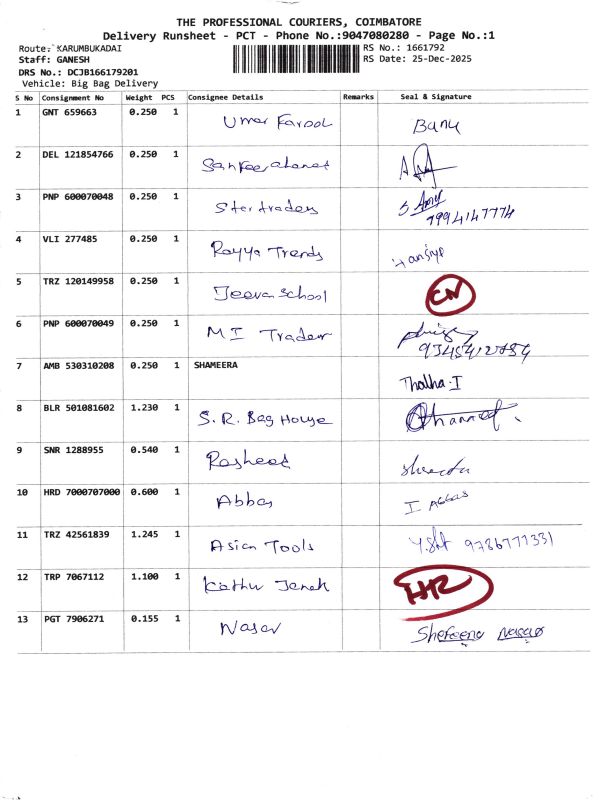 THE PROFESSIONAL COURIERS, COIMBATORE
Delivery Runsheet - PCT - Phone No.:9047080280 - Page No.:1
Route: KARUMBUKADAI RS No.: 1661792
Staff: GANESH RS Date: 25-Dec-2025
DRS No.: DCJB166179201
Vehicle: Big Bag Delivery
S No Consignment No Weight PCS Consignee Details Remarks Seal & Signature
1 GNT 659663 0.250 1 Umar Farool Banu
2 DEL 121854766 0.250 1
3 PNP 600070048 0.250 1 Star traders
7994147774
4 VLI 277485 0.250 1 Rayya Trends
5 TRZ 120149958 0.250 1 Jeeva School CN
6 PNP 600070049 0.250 1 MI Trader
7 AMB 530310208 0.250 1 SHAMEERA Thalha.I
8 BLR 501081602 1.230 1 S.R. Bag House
9 SNR 1288955 0.540 1 Rasheed
10 HRD 7000707000 0.600 1 Abbas I Abbas
11 TRZ 42561839 1.245 1 Asian Tools 9786777331
12 TRP 7067112 1.100 1 Kathu Janah
13 PGT 7906271 0.155 1 Nasar Shefeena Nasar